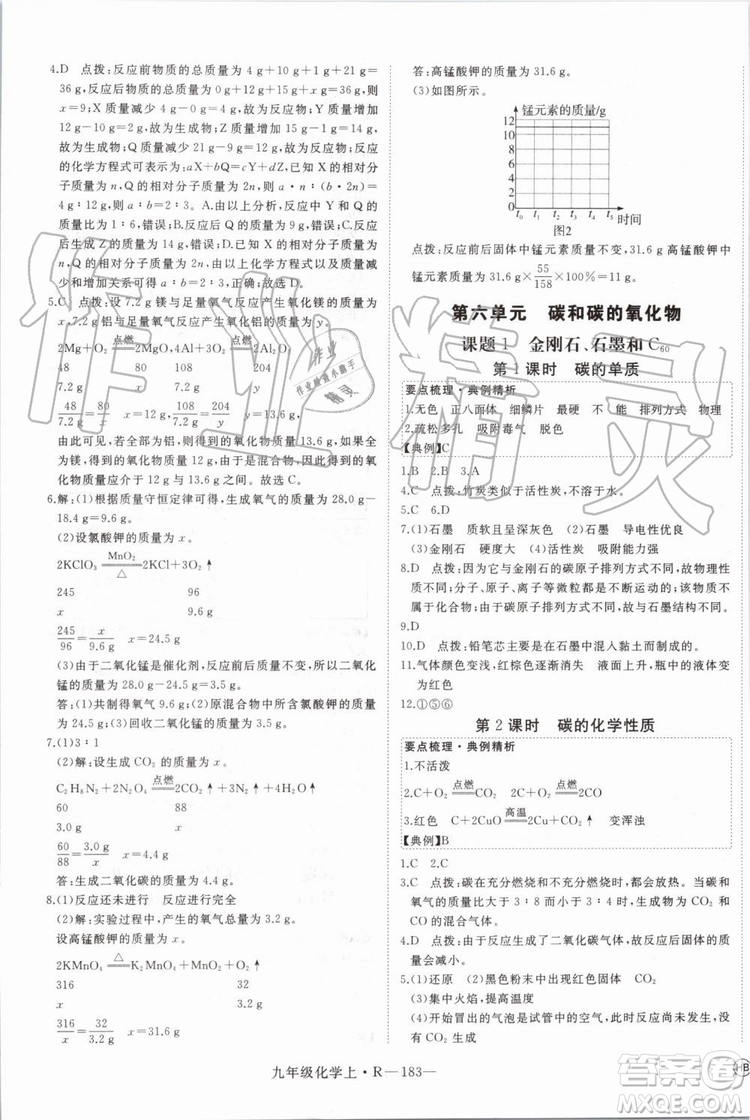 4.D 点拨:反应前物质的总质量为 4 g+10 g+1 g+21 g=
36 g,反应后物质的总质量为 0 g+12 g+15 g+x g=36 g,则
x=9;X 质量减少 4 g,故为反应物;Y 质量增加
12 g-10 g=2 g,故为生成物;Z 质量增加 15 g-1 g=
14 g,故为生成物;Q 质量减少 21 g-9 g=12 g,故为反
应物,则 X 和 Q 为反应物,Y 和 Z 为生成物。反应
的化学方程式可表示为:aX+bQ=cY+dZ,X 和 Q 的相对
分子质量为 n 和 2n,根据质量比可得 a·n:(b·2n)=
4:12,解得 a:b=2:3。
质量为 1:6,错误;B.反应后 Q 的质量为 9 g,错误;C.
反应后生成 Z 的质量为
减少和增加的质量可知,
错误;D.由以上化学方程式可知,正确,故选 D。
5.C 点拨:设 7.2 g 镁与足量氧气反应产生氧化镁的质量为
x,7.2 g 铝与足量氧气反应产生氧化铝的质量为 y。
2Mg+O₂ 点燃 2MgO 4Al+3O₂ 点燃 2Al₂O₃
48 80 108 204
7.2 g x 7.2 g y
48/7.2 g=80/x x=12 g 108/7.2 g=204/y y=13.6 g
由此可见,若全部为铝,得到的氧化物质量为 13.6 g,若全
为镁,得到的氧化物质量为 12 g,由于是混合物,因此得到的氧
化物质量应介于 12 g 与 13.6 g 之间。故选 C。
6.解:(1)根据质量守恒定律可得,生成氧气的质量为 28.0 g-
18.4 g=9.6 g。
(2)设氯酸钾的质量为 x。
2KClO₃ MnO₂ △ 2KCl+3O₂↑
245 96
x 9.6 g
245/96=x/9.6 g x=24.5 g
(3)由于二氧化锰是催化剂,反应前后质量不变,所以二氧化
锰的质量为 28.0 g-24.5 g=3.5 g。
答:(1)共制得氧气 9.6 g;(2)原混合物中所含氯酸钾的质量
为 24.5 g;(3)回收二氧化锰的质量为 3.5 g。
7.(1)3:1
(2)解:设生成 CO₂ 的质量为 x。
C₂H₈N₂+2N₂O₄ 点燃 2CO₂↑+3N₂↑+4H₂O
60 88
3.0 g x
60/88=3.0 g/x x=4.4 g
答:生成二氧化碳的质量为 4.4 g。
8.(1)反应还未进行 反应进行完全
(2)解:实验过程中,产生的氧气总质量为 3.2 g。
设高锰酸钾的质量为 x。
2KMnO₄ △ K₂MnO₄+MnO₂+O₂↑
316 32
x 3.2 g
316/x=32/3.2 g x=31.6 g
答:高锰酸钾的质量为 31.6 g。
(3)如图所示。
锰元素的质量/g
12
10
8
6
4
2
0
t₀ t₁ t₂ t₃ t₄ t₅ 时间
图2
点拨:反应前后固体中锰元素质量不变,31.6 g 高锰酸钾中
锰元素质量为 31.6 g×55/158×100%=11 g。
第六单元 碳和碳的氧化物
课题 1 金刚石、石墨和 C₆₀
第 1 课时 碳的单质
要点梳理·典例精析
1.无色 正八面体 细鳞片 最硬 不 能 排列方式 物理
2.疏松多孔 吸附毒气 脱色
【典例】C
1.B 2.B 3.A
4.C 点拨:竹炭类似于活性炭,不能杀菌。
5.C 6.D
7.(1)石墨 质软且呈深灰色 (2)石墨 导电性优良
(3)金刚石 硬度大 (4)活性炭 吸附能力强
8.D 点拨:石墨烯的它与金刚石的碳原子排列方式不同,
分子、原子、离子等微粒都是微观的,
属于碳单质。
9.D
10.D 点拨:铅笔芯是在石墨中混入黏土而制成的。
11.气体颜色变浅,红棕色逐渐消失 液面上升,瓶中的液体变
为红色
12.①⑤⑥
第 2 课时 碳的化学性质
要点梳理·典例精析
1.不活泼
2.C+O₂ 点燃 CO₂ 2C+O₂ 点燃 2CO
3.红色 C+2CuO 高温 2Cu+CO₂↑ 变浑浊
【典例】B
1.C 2.C
3.C 点拨:碳在充分燃烧和不充分燃烧时质量不同。当碳和
氧气的质量为 3:8 时充分燃烧,当大于 3:8 小于 3:4
时,生成 CO 和 CO₂ 的混合气体。
4.D 点拨:由于反应生成了二氧化碳气体,故固体的质量会
减小。
5.(1)还原 (2)黑色粉末中出现红色固体 CO₂
(3)集中火焰,提高温度
(4)开始冒出的气泡是试管中的空气,没有与碳反应的 CO₂
生成
九年级化学上·R—183—
作业精灵
答案圈
B